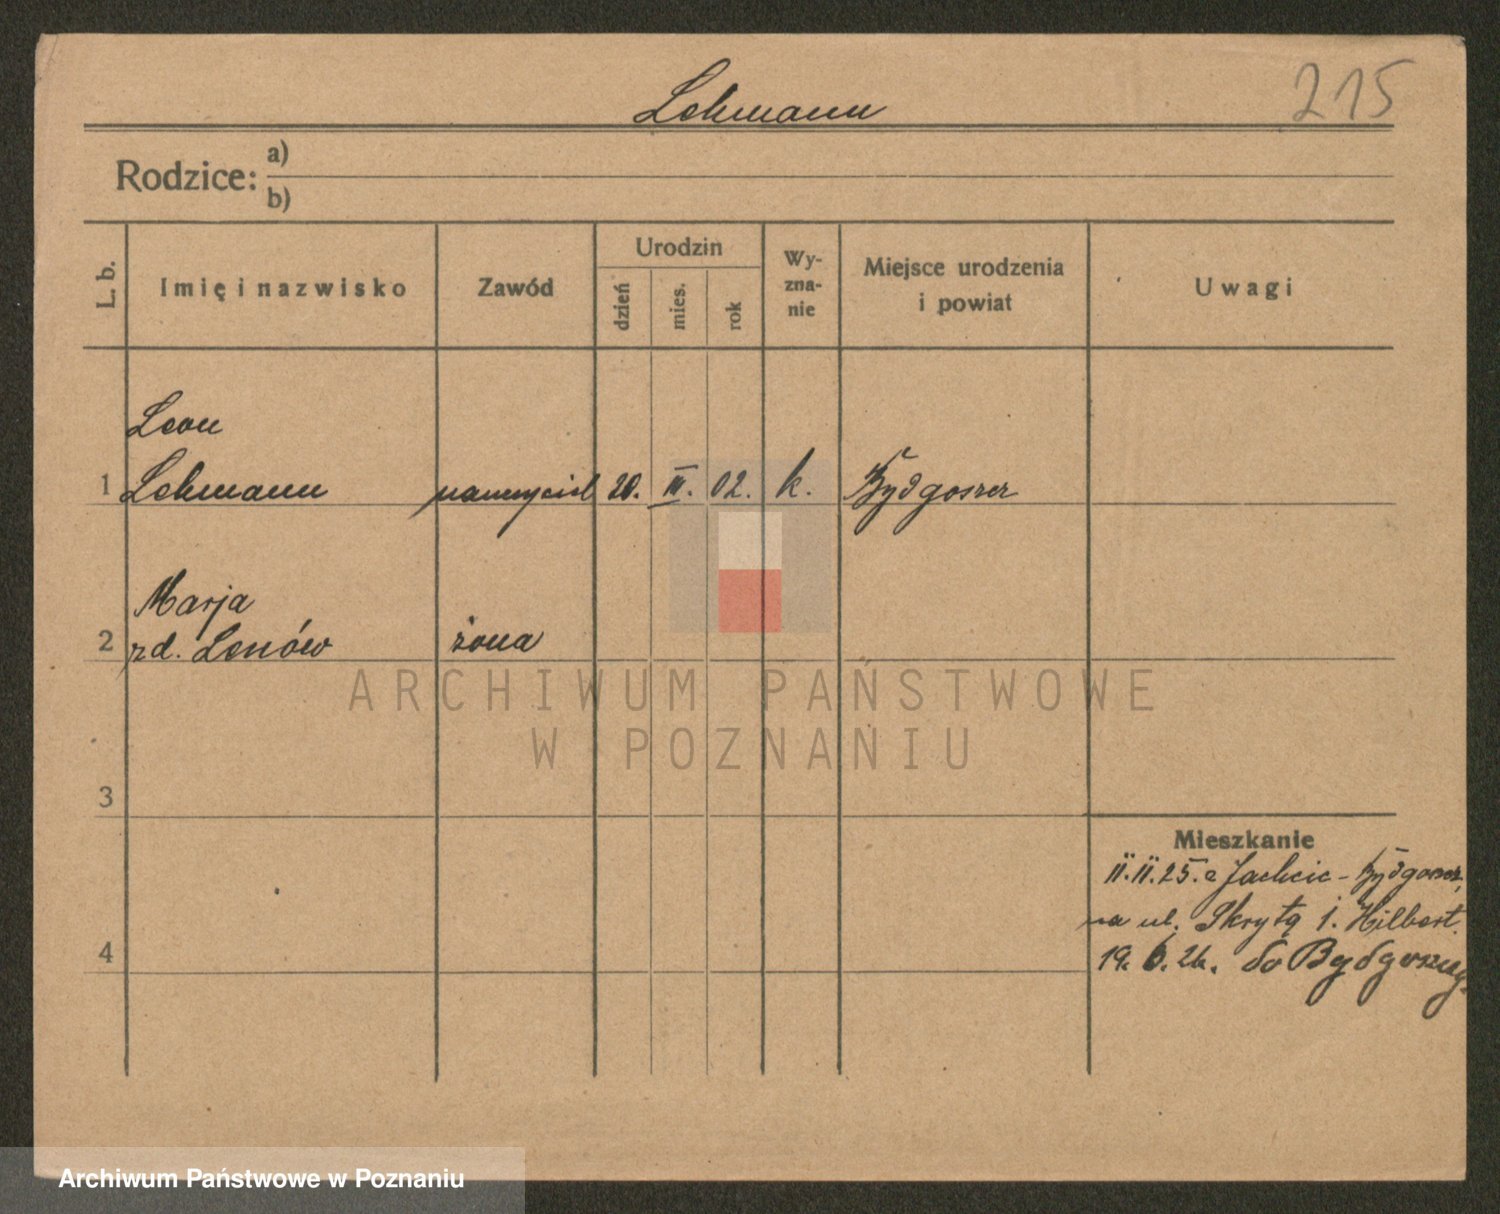 Lehmann
215
Rodzice:
a)
b)
L. b.
Imię i nazwisko
Zawód
Urodzin
dzień
mies.
rok
Wy-
zna-
nie
Miejsce urodzenia
i powiat
Uwagi
Leon
1 Lehmann nauczyciel 20. III. 02. k. Bydgoszcz
Marja
2 zd. Lenów żona
3
4
Mieszkanie
11.11.25. z Jachcic - Bydgoszcz,
na ul. Skrytą i. Hilbert.
19. 6. 26. do Bydgoszczy.
ARCHIWUM PAŃSTWOWE
W POZNANIU
Archiwum Państwowe w Poznaniu